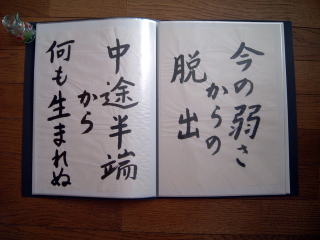 今の弱さ
からの
脱出
中途半端
から
何も生まれぬ